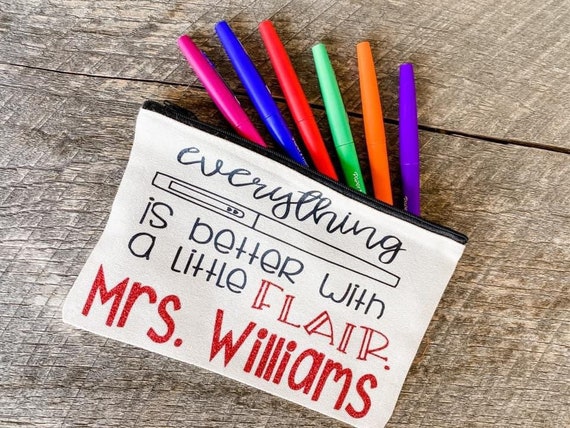 everything
is better with
a little FLAIR.
Mrs. Williams